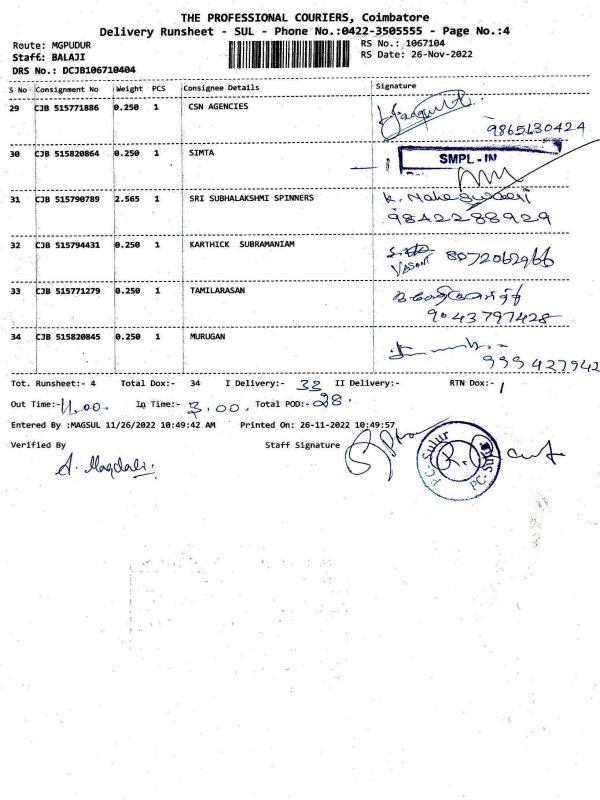 THE PROFESSIONAL COURIERS, Coimbatore
Delivery Runsheet - SUL - Phone No.:0422-3505555 - Page No.:4
Route: MGPUDUR
RS No.: 1067104
Staff: BALAJI
RS Date: 26-Nov-2022
DRS No.: DCJB106710404
S No Consignment No Weight PCS Consignee Details Signature
29 CJB 515771886 0.250 1 CSN AGENCIES
9865130424
30 CJB 515820864 0.250 1 SIMTA
SMPL - IN
31 CJB 515790789 2.565 1 SRI SUBHALAKSHMI SPINNERS K. Maheswari
9842288929
32 CJB 515794431 0.250 1 KARTHICK SUBRAMANIAM
8072062966
33 CJB 515771279 0.250 1 TAMILARASAN
9043797428
34 CJB 515820845 0.250 1 MURUGAN
Tot. Runsheet:- 4 Total Dox:- 34 I Delivery:- 33 II Delivery:- RTN Dox:- 1
Out Time:- 11.00. In Time:- 3.00. Total POD:- 28.
Entered By :MAGSUL 11/26/2022 10:49:42 AM Printed On: 26-11-2022 10:49:57
Verified By Staff Signature
A. Magdali.
PC-Sulur
PC-Sulur